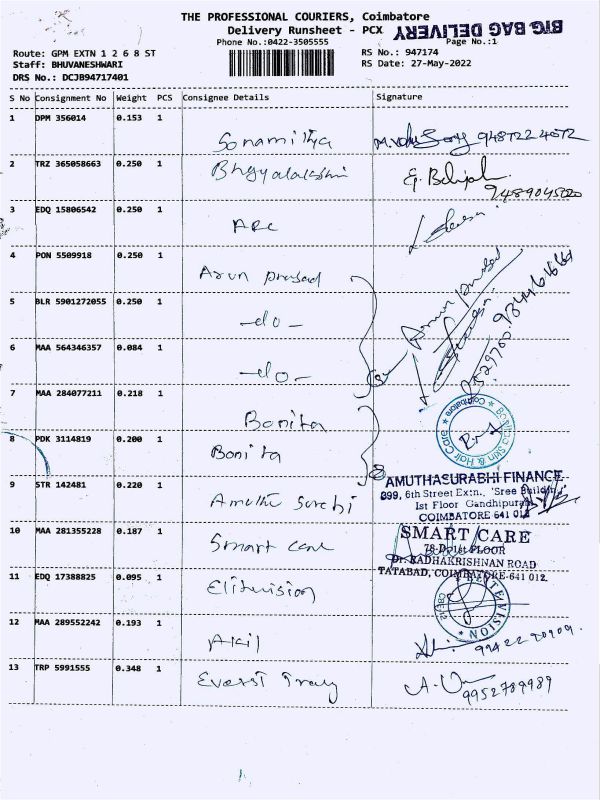 THE PROFESSIONAL COURIERS, Coimbatore
Delivery Runsheet - PCX
BIG BAG DELIVERY
Phone No.:0422-3505555
Page No.:1
Route: GPM EXTN 1 2 6 8 ST
RS No.: 947174
Staff: BHUVANESHWARI
RS Date: 27-May-2022
DRS No.: DCJB94717401
S No Consignment No Weight PCS Consignee Details Signature
1 DPM 356014 0.153 1
Sonamitha 9487224072
2 TRZ 365058663 0.250 1
Bhgyalakshmi
9489045020
3 EDQ 15806542 0.250 1
ARC
4 PON 5509918 0.250 1
Arun prasad
Arun prasad
5 BLR 5901272055 0.250 1
-do-
6 MAA 564346357 0.084 1
-do-
7 MAA 284077211 0.218 1
Bonita
Bonitaa Skin & Hair Care * Coimbatore *
8 PDK 3114819 0.200 1
Bonita
9 STR 142481 0.220 1
Amuthe Surabi
AMUTHASURABHI FINANCE
899, 6th Street Extn., 'Sree Building'
1st Floor Gandhipuram
COIMBATORE 641 012
10 MAA 281355228 0.187 1
Smart care
SMART CARE
78-D, 1st FLOOR
Dr. RADHAKRISHNAN ROAD
TATABAD, COIMBATORE-641 012.
11 EDQ 17388825 0.095 1
Elitevision
12 MAA 289552242 0.193 1
Akil
9942270909
13 TRP 5991555 0.348 1
Everst Trany
9952789989